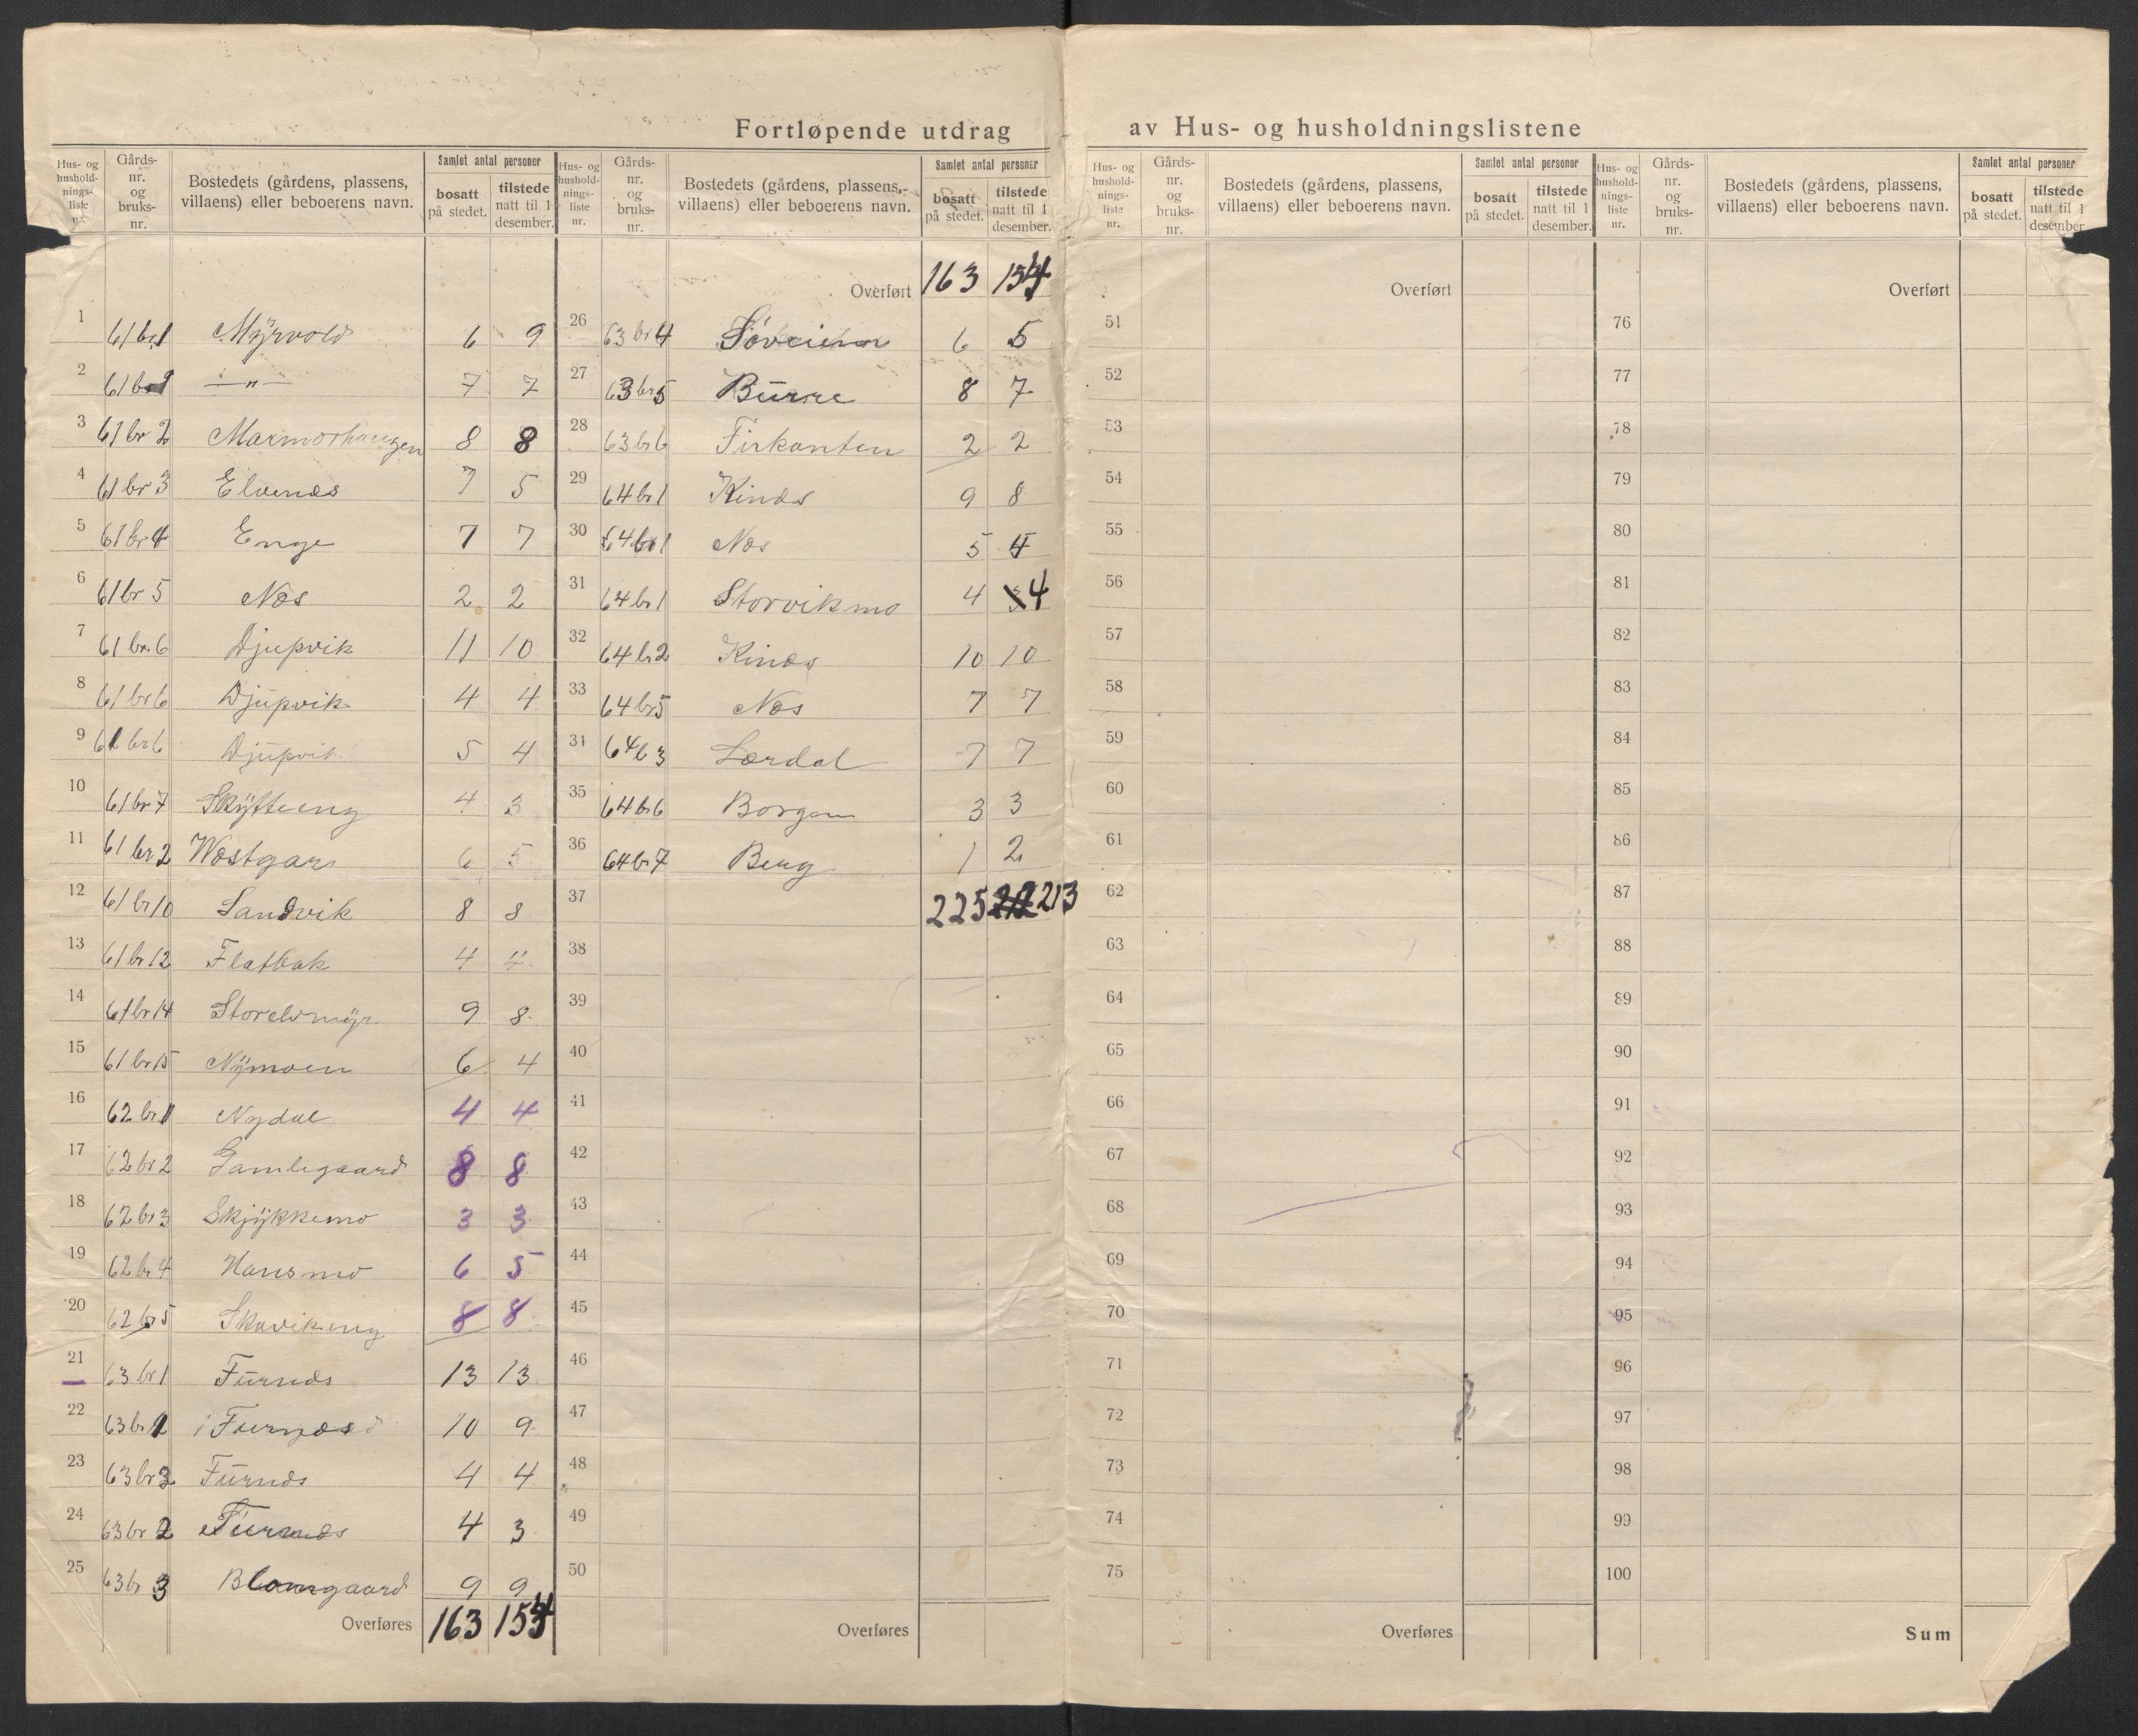 Fortløpende utdrag av Hus- og husholdningslistene
Hus- og hushold-nings-liste nr. | Gårds-nr. og bruks-nr. | Bostedets (gårdens, plassens, villaens) eller beboerens navn. | Samlet antal personer | bosatt på stedet. | tilstede natt til 1 desember.
1 61 br 1 Myrvold 6 9
2 61 br 1 —"— 7 7
3 61 br 2 Marmorhaugen 8 8
4 61 br 3 Elvenæs 7 5
5 61 br 4 Enge 7 7
6 61 br 5 Næs 2 2
7 61 br. 6 Djupvik 11 10
8 61 br 6 Djupvik 4 4
9 61 br 6 Djupvik 5 4
10 61 br 7 Skÿtteeng 4 3
11 61 br 2 Wæstgar 6 5
12 61 br 10 Sandvik 8 8
13 61 br 12 Flatbak 4 4
14 61 br 14 Storelvmÿr 9 8
15 61 br 15 Nÿmoen 6 4
16 62 br 1 Nydal 4 4
17 62 br 2 Gamlegaard 8 8
18 62 br 3 Skjÿkkemo 3 3
19 62 br 4 Hansmo 6 5
20 62 br 5 Skavikeng 8 8
21 63 br 1 Furnæs 13 13
22 63 br 1 Furnæs 10 9
23 63 br 2 Furnæs 4 4
24 63 br 2 Furnæs 4 3
25 63 br 3 Blomgaard 9 9
Overføres 163 154
Hus- og hushold-nings-liste nr. | Gårds-nr. og bruks-nr. | Bostedets (gårdens, plassens, villaens) eller beboerens navn. | Samlet antal personer | bosatt på stedet. | tilstede natt til 1 desember.
Overført 163 154
26 63 br 4 6 5
27 63 br 5 Burre 8 7
28 63 br 6 Firkanten 2 2
29 64 br 1 Kinæs 9 8
30 64 br 1 Næs 5 4
31 64 br 1 Storvikmo 4 3 4
32 64 br 2 Kinæs 10 10
33 64 br 5 Næs 7 7
34 64 b 3 Lærdal 7 7
35 64 br 6 Borgen 3 3
36 64 br 7 Berg 1 2
37 225 212 213
38
39
40
41
42
43
44
45
46
47
48
49
50
Overføres
Hus- og hushold-nings-liste nr. | Gårds-nr. og bruks-nr. | Bostedets (gårdens, plassens, villaens) eller beboerens navn. | Samlet antal personer | bosatt på stedet. | tilstede natt til 1 desember.
Overført
51
52
53
54
55
56
57
58
59
60
61
62
63
64
65
66
67
68
69
70
71
72
73
74
75
Overføres
Hus- og hushold-nings-liste nr. | Gårds-nr. og bruks-nr. | Bostedets (gårdens, plassens, villaens) eller beboerens navn. | Samlet antal personer | bosatt på stedet. | tilstede natt til 1 desember
Overført
76
77
78
79
80
81
82
83
84
85
86
87
88
89
90
91
92
93
94
95
96
97
98
99
100
Sum